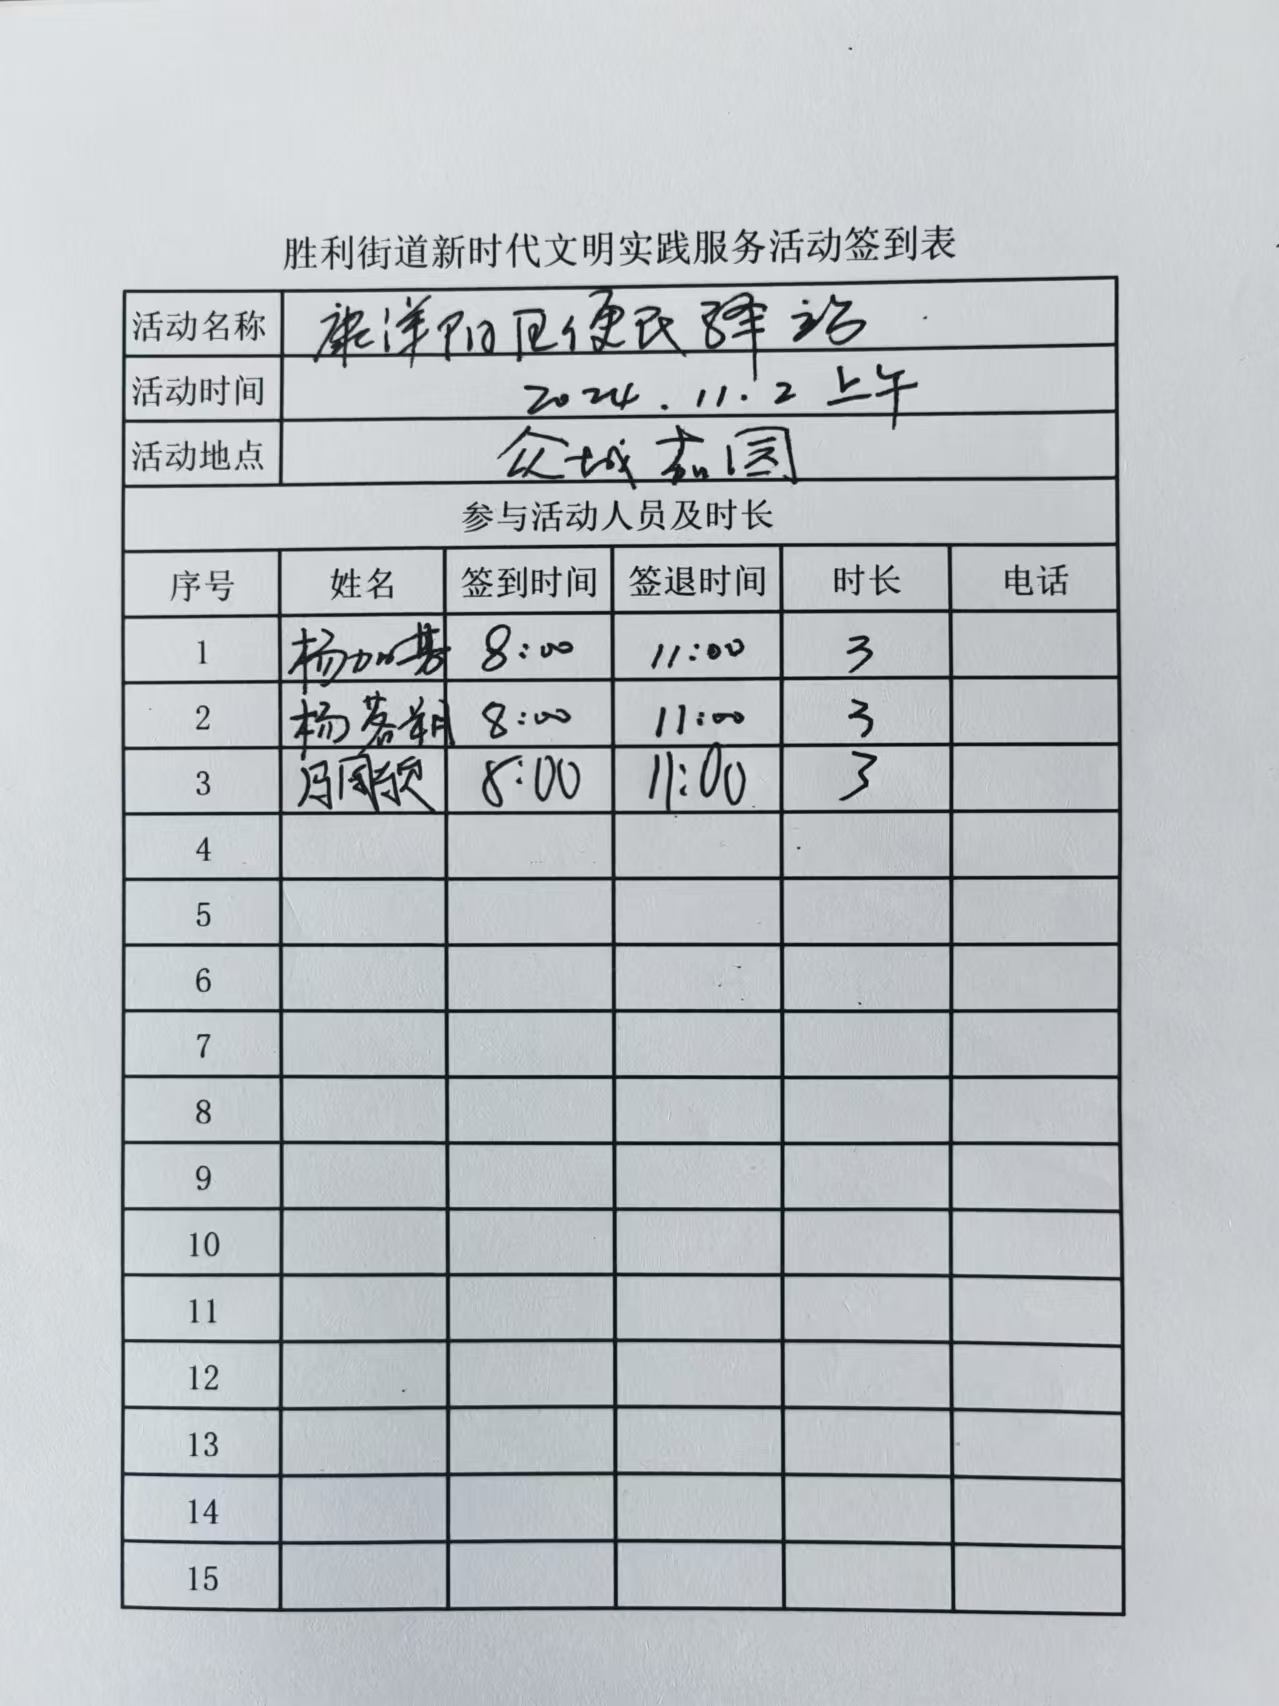 胜利街道新时代文明实践服务活动签到表
活动名称 康洋阳 便民驿站
活动时间 2024.11.2 上午
活动地点 众城嘉园
参与活动人员及时长
序号 姓名 签到时间 签退时间 时长 电话
1 杨加基 8:00 11:00 3
2 杨茗朝 8:00 11:00 3
3 冯国 8:00 11:00 3
4
5
6
7
8
9
10
11
12
13
14
15